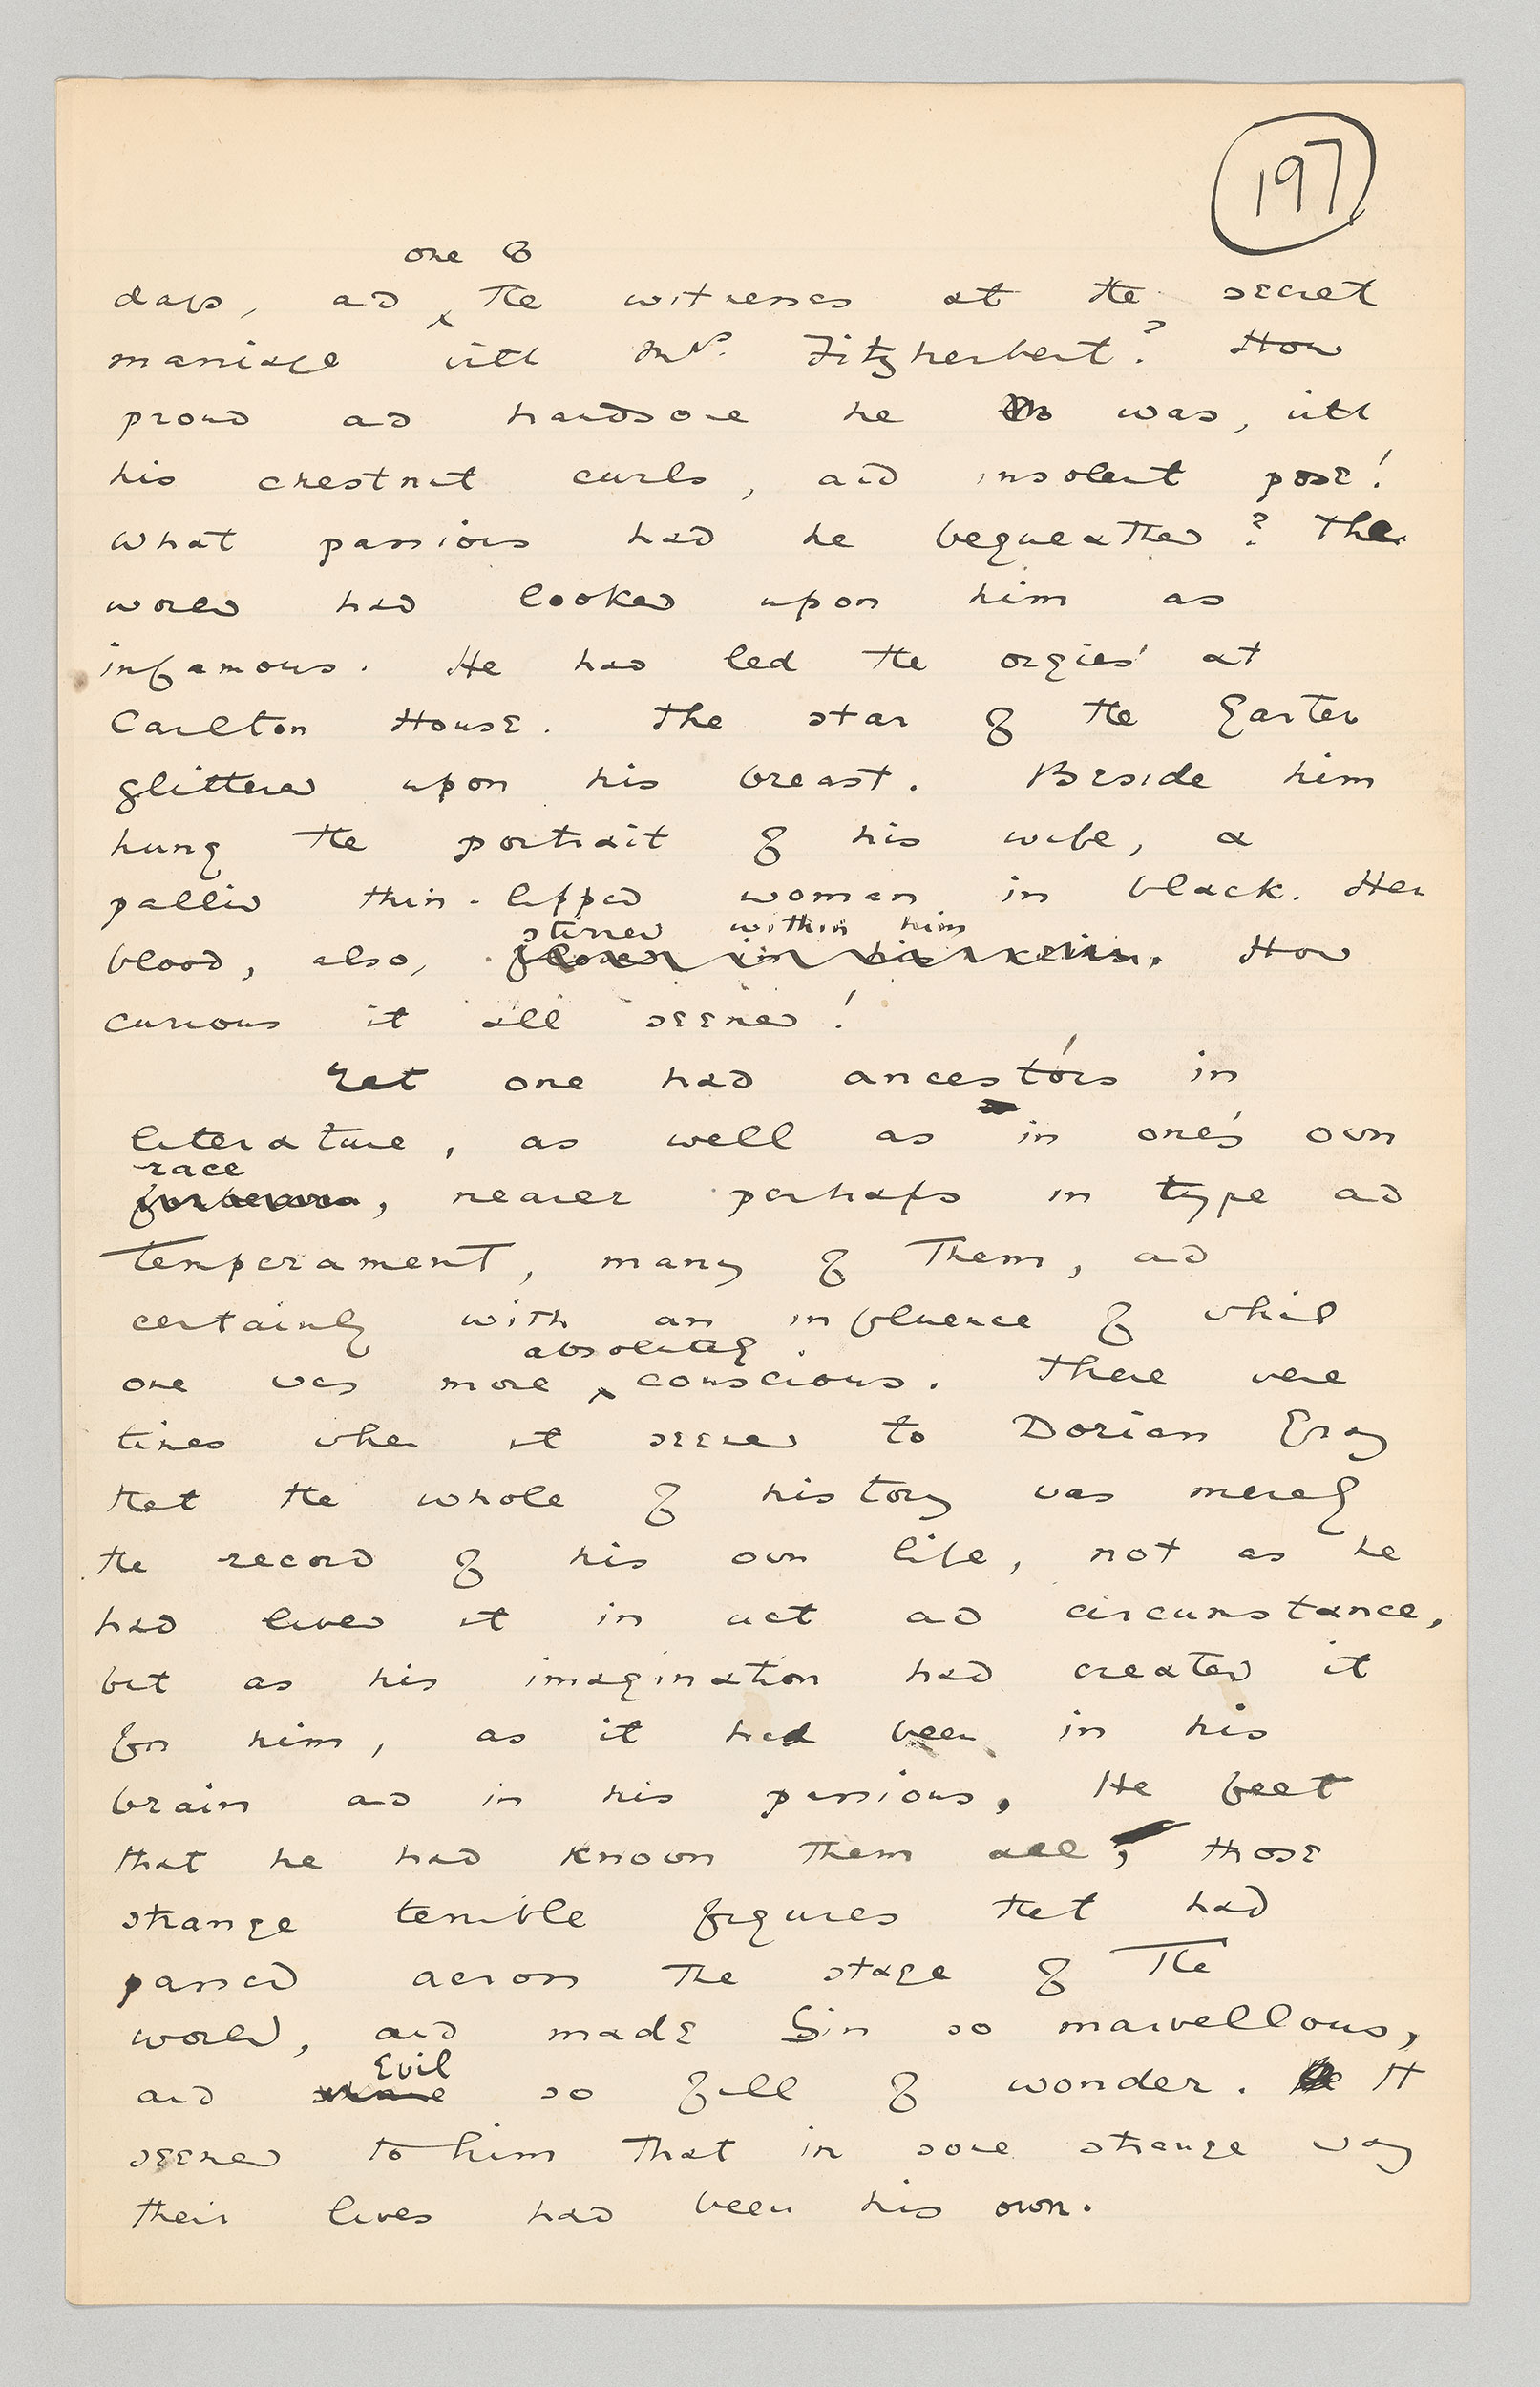 197
one of
days, and the witnesses at the secret
marriage with Mrs. Fitzherbert? How
proud and handsome he was, with
his chestnut curls, and insolent pose!
What passions had he bequeathed? The
world had looked upon him as
infamous. He had led the orgies at
Carlton House. The star of the Garter
glittered upon his breast. Beside him
hung the portrait of his wife, a
pallid thin-lipped woman in black. Her
stirred within him
blood, also, flowed in his veins. How
curious it all seemed!
Yet one had ancestors in
literature, as well as in one's own
race
, nearer perhaps in type and
temperament, many of them, and
certainly with an influence of which
absolutely
one was more conscious. There were
times when it seemed to Dorian Gray
that the whole of history was merely
the record of his own life, not as he
had lived it in act and circumstance,
but as his imagination had created it
for him, as it had been in his
brain and in his passions. He felt
that he had known them all, those
strange terrible figures that had
passed across the stage of the
world, and made Sin so marvellous,
Evil
and so full of wonder. It
seemed to him that in some strange way
their lives had been his own.